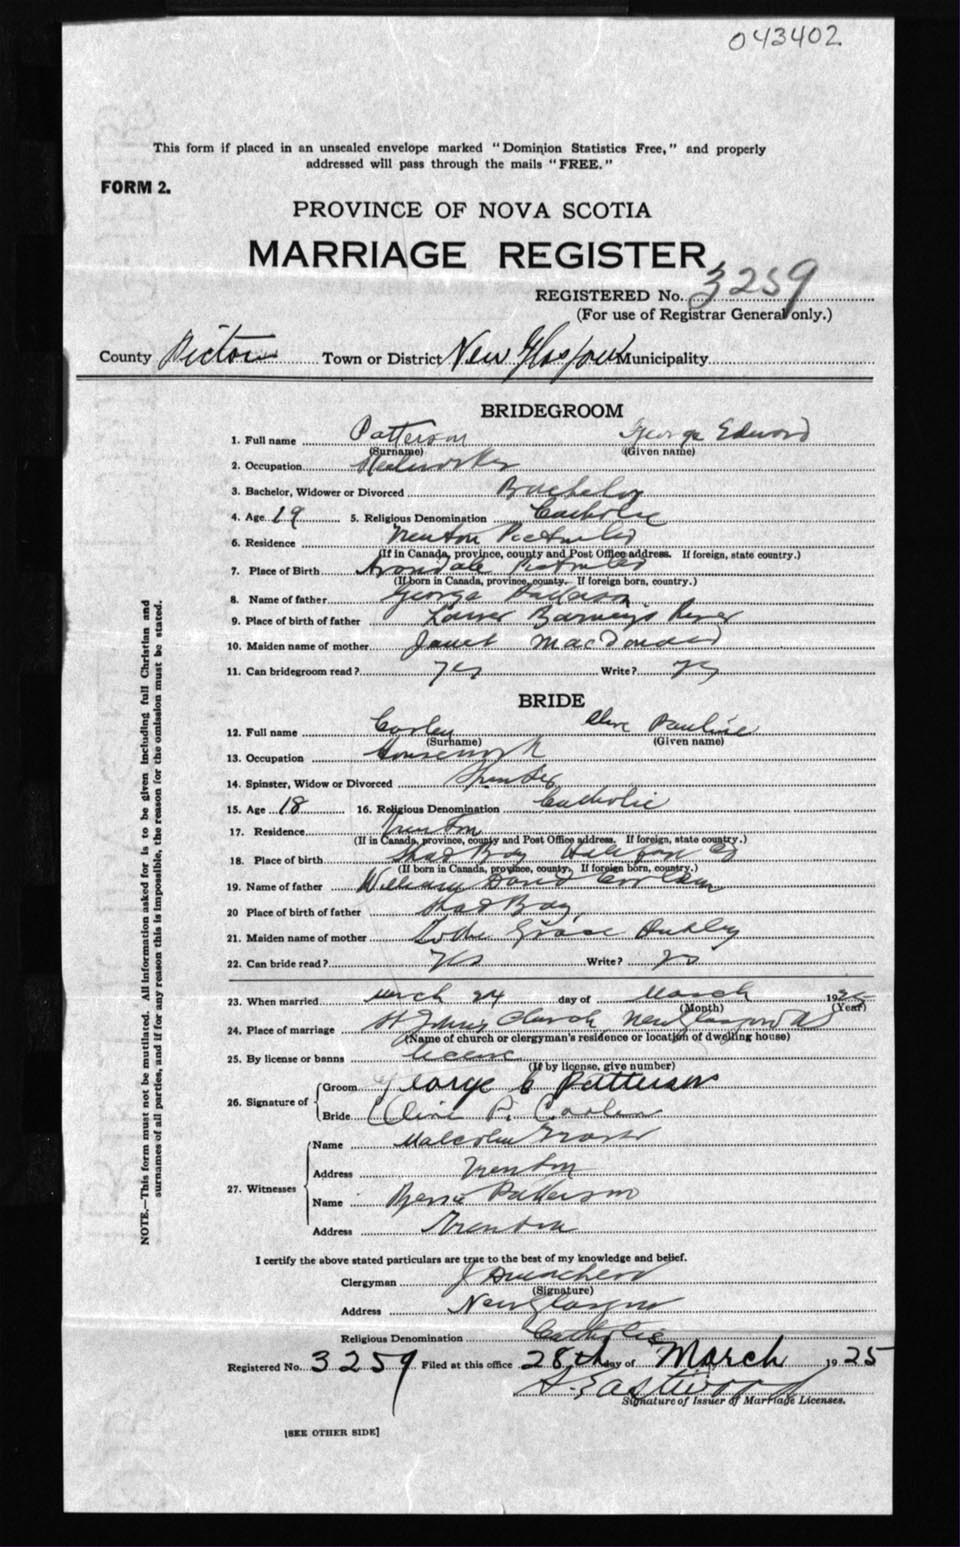 043402
This form if placed in an unsealed envelope marked "Dominion Statistics Free," and properly
addressed will pass through the mails "FREE."
FORM 2.
PROVINCE OF NOVA SCOTIA
MARRIAGE REGISTER
REGISTERED No. 3259
(For use of Registrar General only.)
County Pictou Town or District New Glasgow Municipality
BRIDEGROOM
1. Full name Patterson George Edward
(Surname) (Given name)
2. Occupation Steelworker
3. Bachelor, Widower or Divorced Bachelor
4. Age 19 5. Religious Denomination Catholic
6. Residence Trenton Pictou Co
(If in Canada, province, county and Post Office address. If foreign, state country.)
7. Place of Birth Avondale Pictou Co
(If born in Canada, province, county. If foreign born, country.)
8. Name of father George Patterson
9. Place of birth of father Lower Barneys River
10. Maiden name of mother Janet MacDonald
11. Can bridegroom read? Yes Write? Yes
BRIDE
12. Full name Pauline
(Surname) (Given name)
13. Occupation Housework
14. Spinster, Widow or Divorced Spinster
15. Age 18 16. Religious Denomination Catholic
17. Residence Trenton
(If in Canada, province, county and Post Office address. If foreign, state country.)
18. Place of birth Shad Bay Halifax Co
(If born in Canada, province, county. If foreign born, country.)
19. Name of father William David
20 Place of birth of father Shad Bay,
21. Maiden name of mother Grace
22. Can bride read? Yes Write? Yes
23. When married March 24 day of March 1925
(Month) (Year)
24. Place of marriage St Church, New Glasgow NS
(Name of church or clergyman's residence or location of dwelling house)
25. By license or banns license
(If by license, give number)
26. Signature of Groom George E Patterson
Bride Olive P.
27. Witnesses Name Malcolm
Address Trenton
Name Patterson
Address Trenton
I certify the above stated particulars are true to the best of my knowledge and belief.
Clergyman J
(Signature)
Address New Glasgow
Religious Denomination Catholic
Registered No. 3259 Filed at this office 28th day of March 1925
Eastwood
Signature of Issuer of Marriage Licenses.
[SEE OTHER SIDE]
NOTE.—This form must not be mutilated. All information asked for is to be given including full Christian and
surnames of all parties, and if for any reason this is impossible, the reason for the omission must be stated.